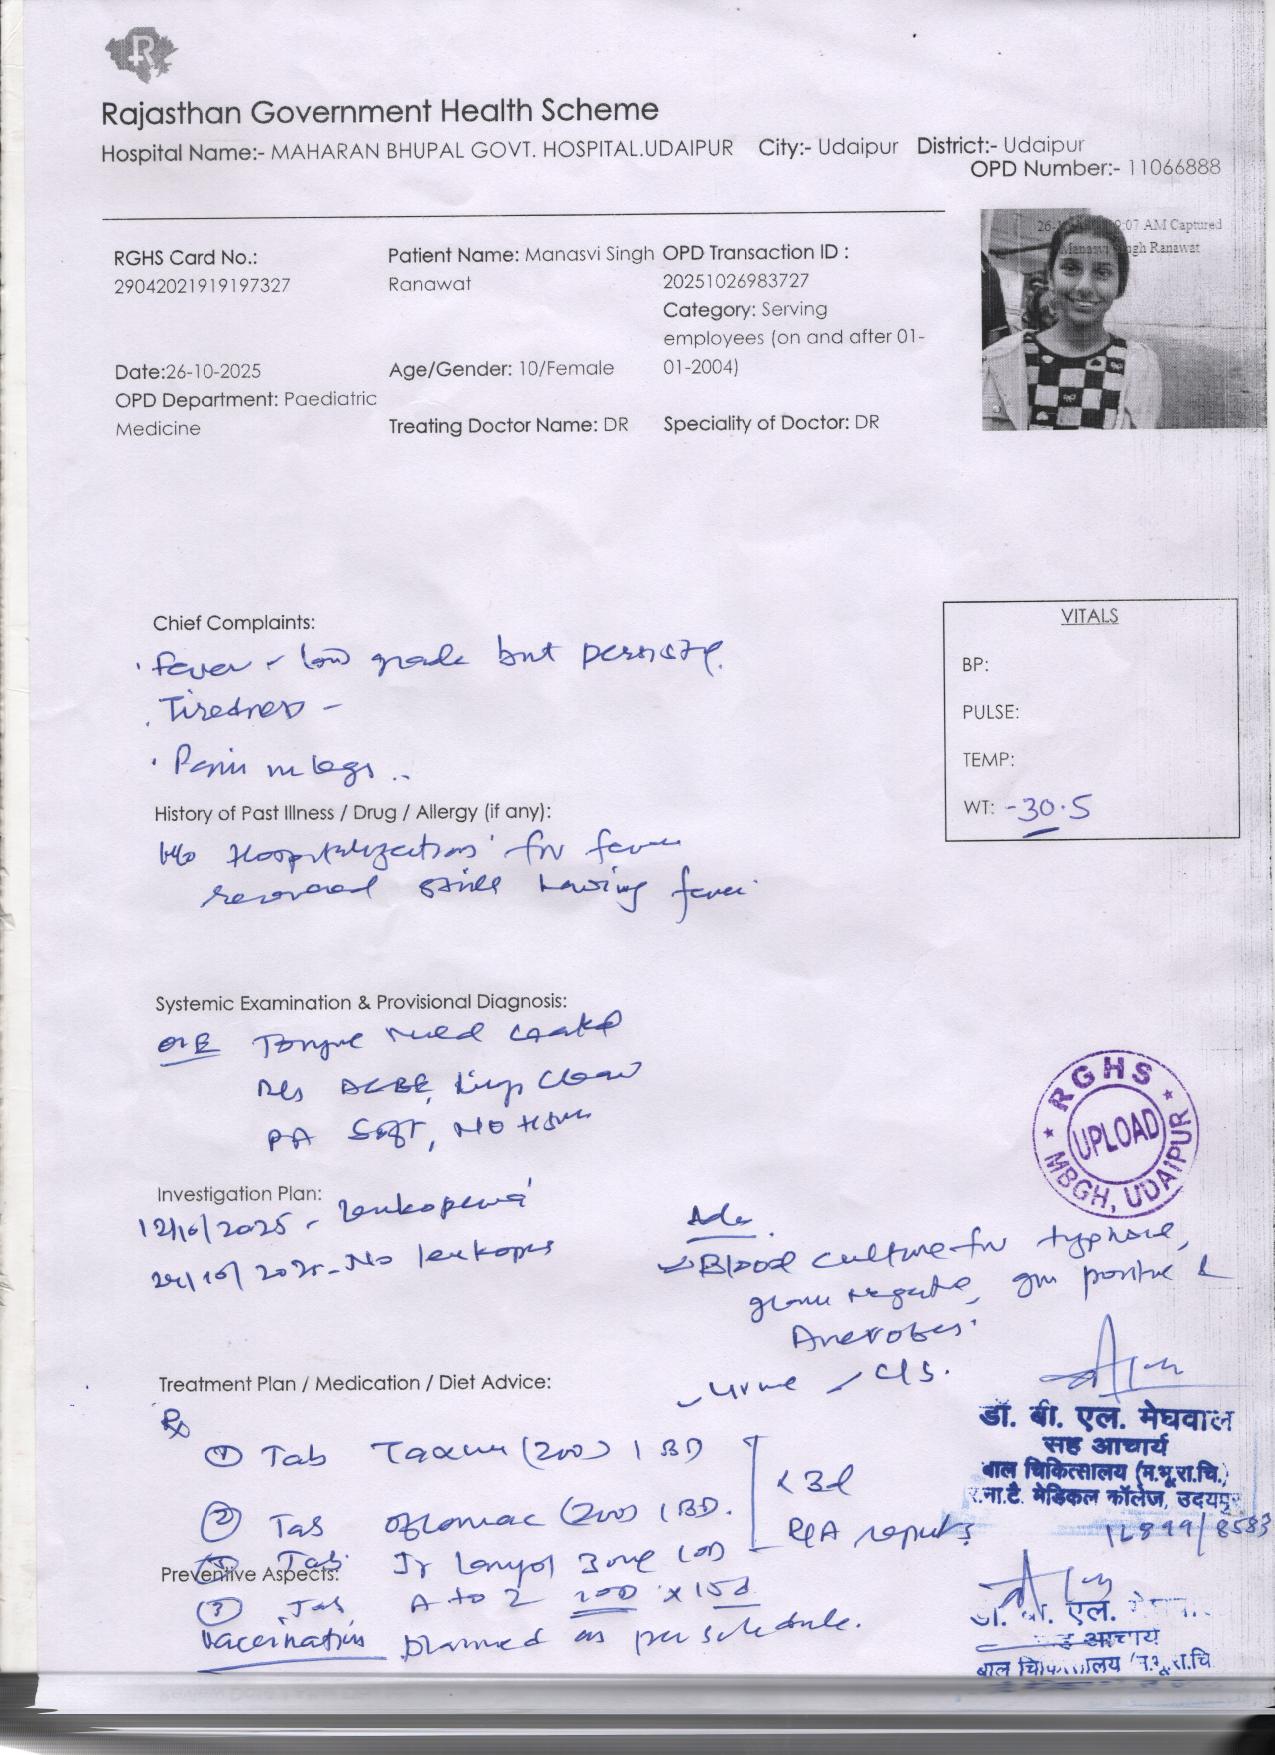 R
Rajasthan Government Health Scheme
Hospital Name:- MAHARAN BHUPAL GOVT. HOSPITAL.UDAIPUR City:- Udaipur District:- Udaipur
OPD Number:- 11066888
9:07 AM Captured
Manasvi Singh Ranawat
RGHS Card No.:
29042021919197327
Patient Name: Manasvi Singh
Ranawat
OPD Transaction ID :
20251026983727
Category: Serving
employees (on and after 01-
01-2004)
Date:26-10-2025
Age/Gender: 10/Female
OPD Department: Paediatric
Medicine
Treating Doctor Name: DR
Speciality of Doctor: DR
VITALS
BP:
PULSE:
TEMP:
WT: -30.5
Chief Complaints:
Fever - low grade but
Tiredness -
Pain in legs ..
History of Past Illness / Drug / Allergy (if any):
H/o Hospitalization for fever
still having fever
Systemic Examination & Provisional Diagnosis:
O/E Tongue coated
AEBE, clear
PA Soft, No
Investigation Plan:
12/10/2025 - leukopenia
No
Adv
Blood culture for
gram negative, gm positive &
Anerobes
Urine - C/S.
RGHS
UPLOAD
MBGH, UDAIPUR
Treatment Plan / Medication / Diet Advice:
Rx
① Tab (200) 1 BD
② Tab (200) 1 BD.
x 3d
reports
Tab. Jr 1 OD
Preventive Aspects:
③ Tab A to Z x 15d
Vaccination planned as per schedule.
डॉ. बी. एल. मेघवाल
सह आचार्य
बाल चिकित्सालय (म.भू.रा.चि.)
र.ना.टै. मेडिकल कॉलेज, उदयपुर
/8583
डॉ. बी. एल.
सह आचार्य